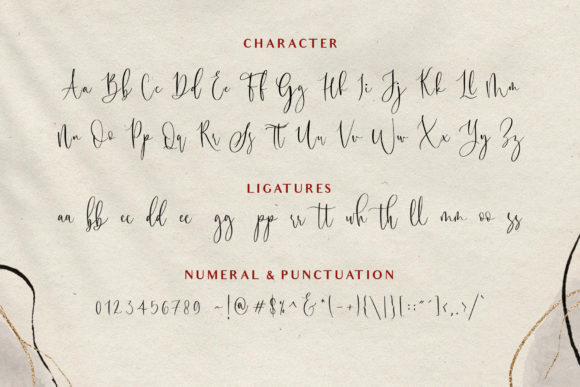 CHARACTER
Aa Bb Cc Dd Ee Ff Gg Hh Ii Jj Kk Ll Mm
Nn Oo Pp Qq Rr Ss Tt Uu Vv Ww Xx Yy Zz
LIGATURES
aa bb cc dd ee gg pp rr tt wh th ll mm oo ss
NUMERAL & PUNCTUATION
0123456789 ~!@#$%^&*(-+){\|}[:;"´]<,.>/`